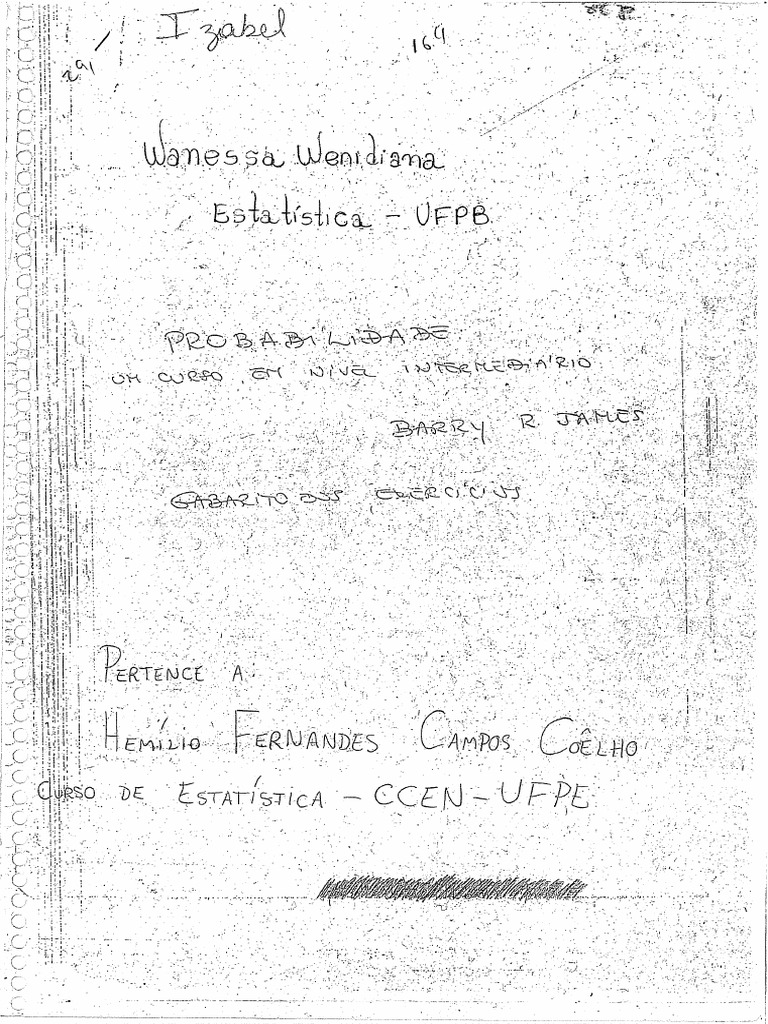 Izabel
164
Wanessa Wenidiana
Estatística - UFPB
PROBABILIDADE
UM CURSO EM NÍVEL INTERMEDIÁRIO
BARRY R JAMES
GABARITO DOS EXERCÍCIOS
PERTENCE A:
HEMÍLIO FERNANDES CAMPOS COÊLHO
CURSO DE ESTATÍSTICA - CCEN - UFPE